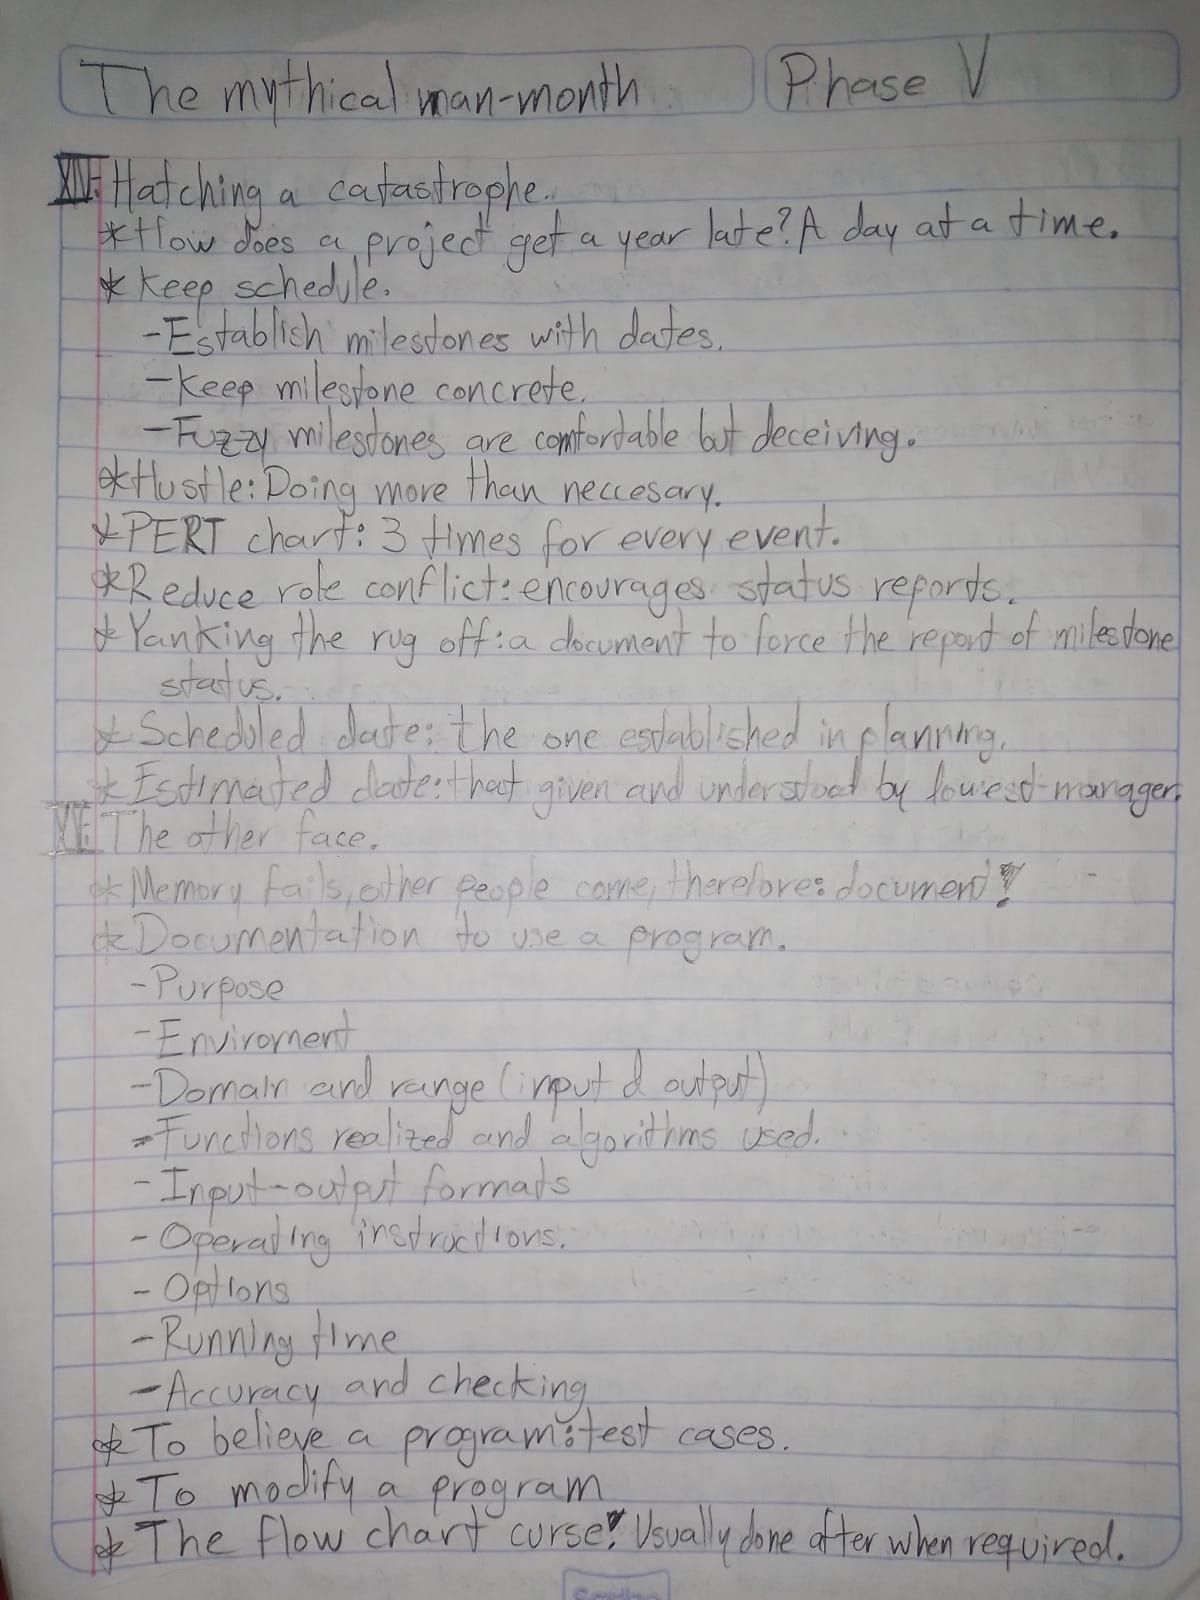 The mythical man-month
Phase V
XIV: Hatching a catastrophe.
* How does a project get a year late? A day at a time.
* Keep schedule.
- Establish milestones with dates.
- Keep milestone concrete.
- Fuzzy milestones are comfortable but deceiving.
* Hustle: Doing more than neccesary.
* PERT chart: 3 times for every event.
* Reduce role conflict: encourages status reports.
* Yanking the rug off: a document to force the report of milestone
status.
* Scheduled date: the one established in planning.
* Estimated date: that given and understood by lowest-manager.
XV: The other face.
* Memory fails, other people come, therefore: document!
* Documentation to use a program.
- Purpose
- Enviroment
- Domain and range (input & output)
- Functions realized and algorithms used.
- Input-output formats
- Operating instructions.
- Options
- Running time
- Accuracy and checking
* To believe a program: test cases.
* To modify a program
* The flow chart curse: Usually done after when required.